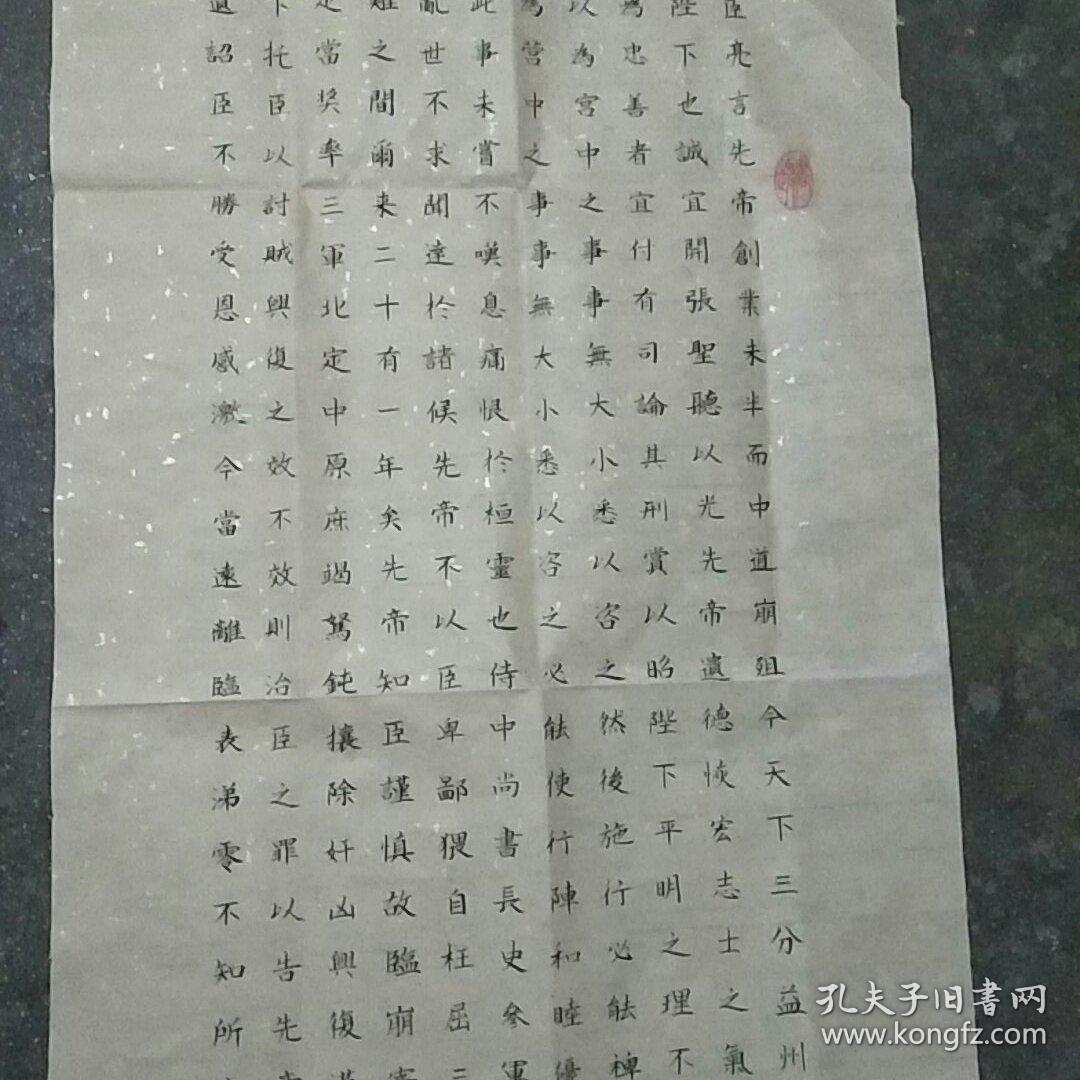 臣亮言先帝創業未半而中道崩殂今天下三分益州
陛下也誠宜開張聖聽以光先帝遺德恢宏志士之氣
為忠善者宜付有司論其刑賞以昭陛下平明之理不
以為宮中之事事無大小悉以咨之然後施行必能裨
為營中之事事無大小悉以咨之必能使行陣和睦優
此事未嘗不嘆息痛恨於桓靈也侍中尚書長史參軍
亂世不求聞達於諸候先帝不以臣卑鄙猥自枉屈三
難之間爾来二十有一年矣先帝知臣謹慎故臨崩寄
定當奖率三軍北定中原庶竭駑鈍攘除奸凶興復漢
下托臣以討賊興復之效不效則治臣之罪以告先帝
遺詔臣不勝受恩感激今當遠離臨表涕零不知所
孔夫子旧書网
www.kongfz.com